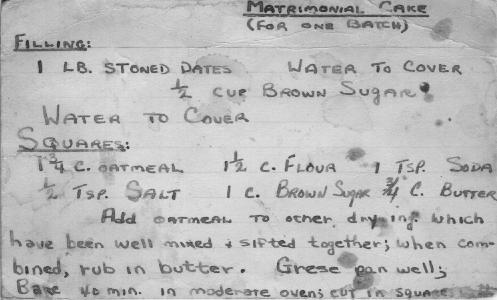 MATRIMONIAL CAKE
(FOR ONE BATCH)
FILLING:
1 LB. STONED DATES WATER TO COVER
1/2 CUP BROWN SUGAR
WATER TO COVER
SQUARES:
1 3/4 C. OATMEAL 1 1/2 C. FLOUR 1 TSP. SODA
1/2 TSP. SALT 1 C. BROWN SUGAR 3/4 C. BUTTER
Add OATMEAL TO other dry ing. which
have been well mixed & sifted together; when com-
bined, rub in butter. Grese pan well;
Bake 40 min. in moderate oven; cut in squares